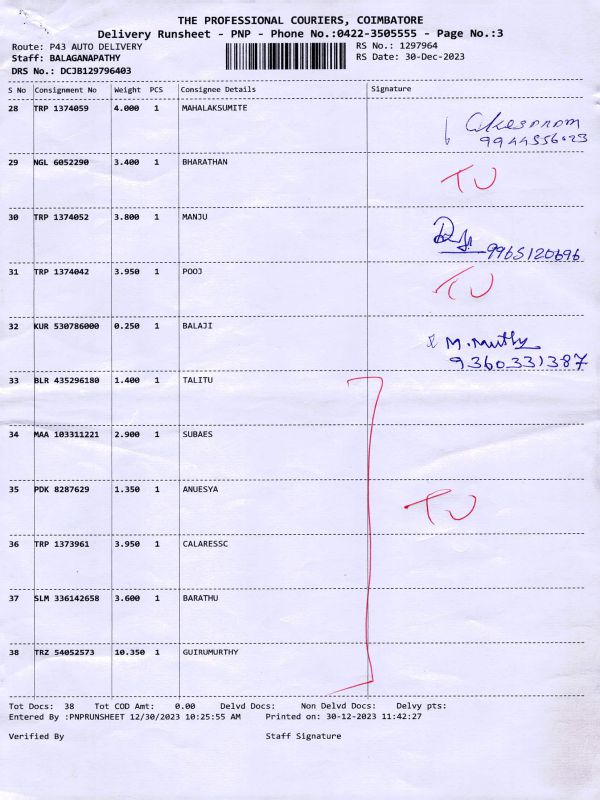 THE PROFESSIONAL COURIERS, COIMBATORE
Delivery Runsheet - PNP - Phone No.:0422-3505555 - Page No.:3
Route: P43 AUTO DELIVERY RS No.: 1297964
Staff: BALAGANAPATHY RS Date: 30-Dec-2023
DRS No.: DCJB129796403
S No Consignment No Weight PCS Consignee Details Signature
28 TRP 1374059 4.000 1 MAHALAKSUMITE
9944556023
29 NGL 6052290 3.400 1 BHARATHAN TU
30 TRP 1374052 3.800 1 MANJU
9965120696
31 TRP 1374042 3.950 1 POOJ TU
32 KUR 530786000 0.250 1 BALAJI M. Muthy
9360331387
33 BLR 435296180 1.400 1 TALITU
34 MAA 103311221 2.900 1 SUBAES
35 PDK 8287629 1.350 1 ANUESYA TU
36 TRP 1373961 3.950 1 CALARESSC
37 SLM 336142658 3.600 1 BARATHU
38 TRZ 54052573 10.350 1 GUIRUMURTHY
Tot Docs: 38 Tot COD Amt: 0.00 Delvd Docs: Non Delvd Docs: Delvy pts:
Entered By :PNPRUNSHEET 12/30/2023 10:25:55 AM Printed on: 30-12-2023 11:42:27
Verified By Staff Signature